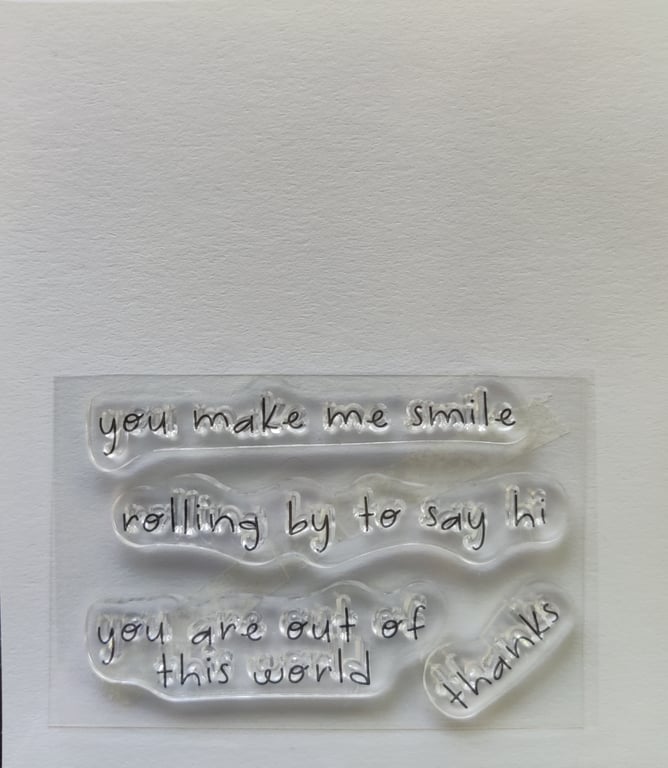 you make me smile
rolling by to say hi
you are out of
this world
thanks